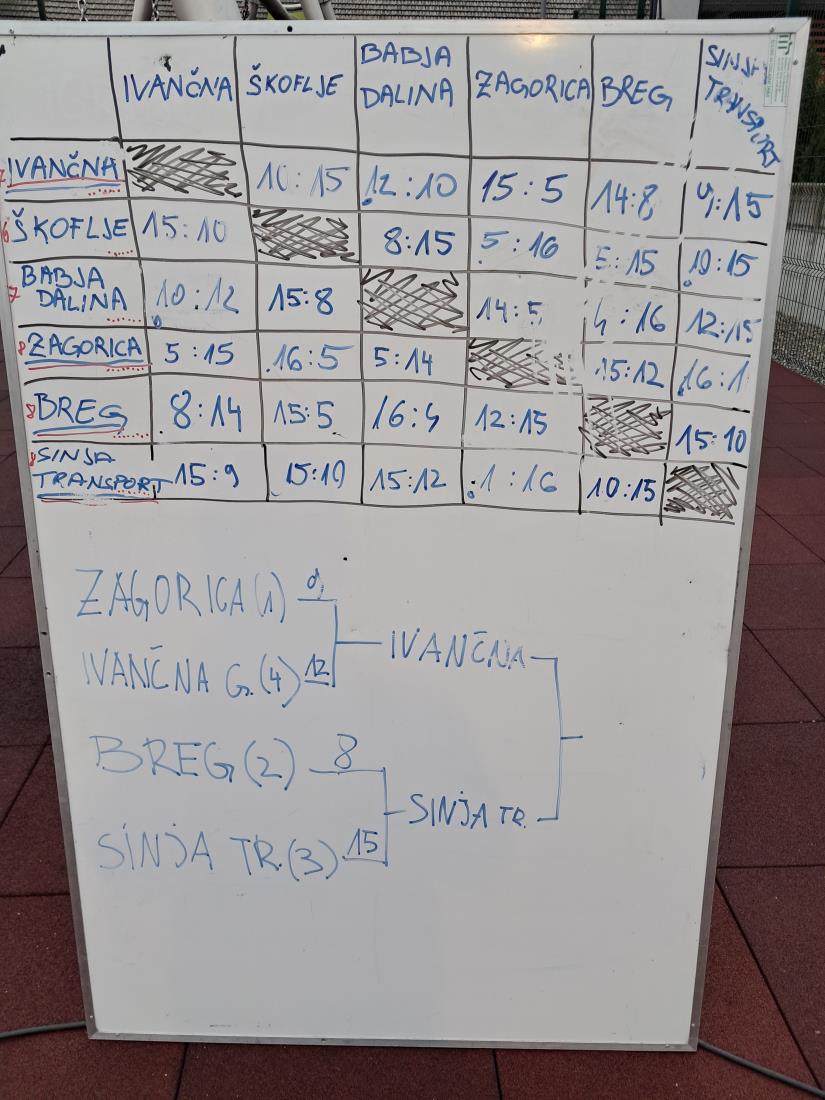 IVANČNA ŠKOFLJE BABJA DALINA ZAGORICA BREG SINJA TRANSPORT
7 IVANČNA 10:15 12:10 15:5 14:8 9:15
6 ŠKOFLJE 15:10 8:15 5:16 5:15 10:15
7 BABJA DALINA 10:12 15:8 14:5 4:16 12:15
8 ZAGORICA 5:15 16:5 5:14 15:12 16:1
8 BREG 8:14 15:5 16:4 12:15 15:10
8 SINJA TRANSPORT 15:9 15:10 15:12 1:16 10:15
ZAGORICA (1) 9
IVANČNA G. (4) 12
IVANČNA
BREG (2) 8
SINJA TR. (3) 15
SINJA TR.